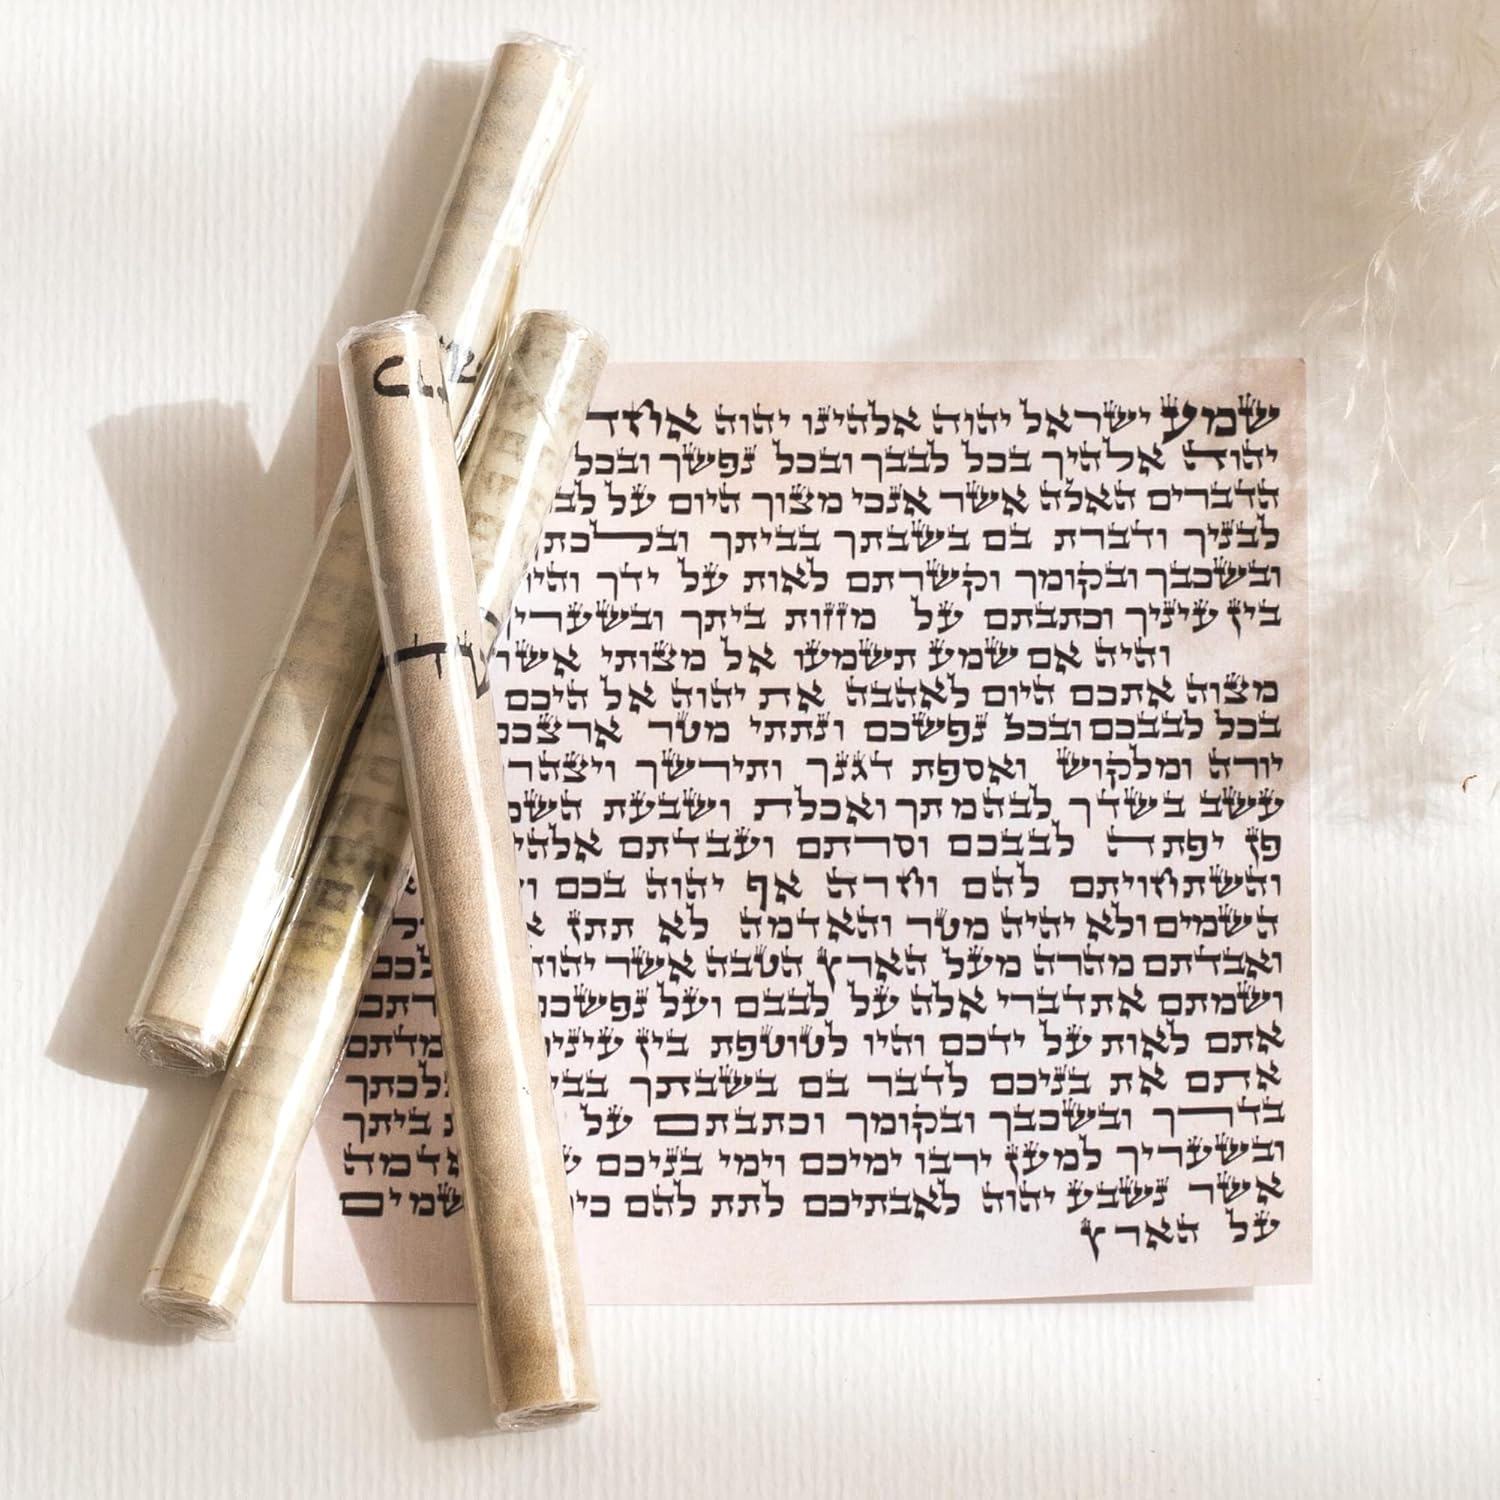 שמע ישראל יהוה אלהינו יהוה אחד
יהוה אלהיך בכל לבבך ובכל נפשך ובכל
הדברים האלה אשר אנכי מצוך היום על
לבניך ודברת בם בשבתך בביתך ובלכתך
ובשכבך ובקומך וקשרתם לאות על ידך
בין עיניך וכתבתם על מזזות ביתך ובשעריך
והיה אם שמע תשמעו אל מצותי אשר
מצוה אתכם היום לאהבה את יהוה אלהיכם
בכל לבבכם ובכל נפשכם ונתתי מטר ארצכם
יורה ומלקוש ואספת דגנך ותירשך ויצהר
עשב בשדך לבהמתך ואכלת ושבעת
פן יפתה לבבכם וסרתם ועבדתם
והשתחויתם להם וחרה אף יהוה בכם
השמים ולא יהיה מטר והאדמה לא תתן
ואבדתם מהרה מעל הארץ הטבה אשר יהוה
ושמתם את דברי אלה על לבבם ועל נפשכם
אתם לאות על ידכם והיו לטוטפת בין
אתם את בניכם לדבר בם בשבתך
בדרך ובשכבך ובקומך וכתבתם על ביתך
ובשעריך למען ירבו ימיכם וימי בניכם
אשר נשבע יהוה לאבתיכם לתת להם
על הארץ